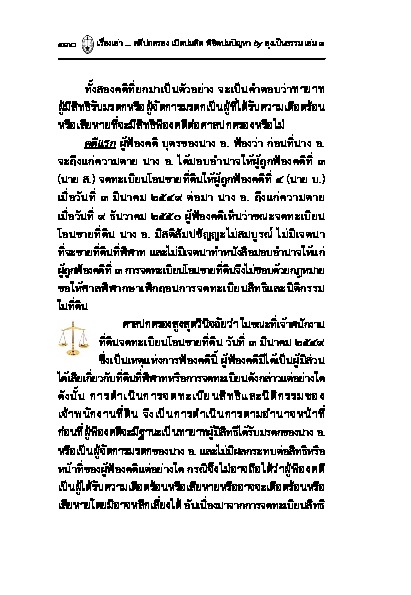 ๑๓๐ เรื่องเล่า ... คดีปกครอง เปิดปมคิด พิชิตปมปัญหา by ลุงเป็นธรรม เล่ม ๓
ทั้งสองคดีที่ยกมาเป็นตัวอย่าง จะเป็นคำตอบว่าทายาท
ผู้มีสิทธิรับมรดกหรือผู้จัดการมรดกเป็นผู้ที่ได้รับความเดือดร้อน
หรือเสียหายที่จะมีสิทธิฟ้องคดีต่อศาลปกครองหรือไม่
คดีแรก ผู้ฟ้องคดี บุตรของนาง อ. ฟ้องว่า ก่อนที่นาง อ.
จะถึงแก่ความตาย นาง อ. ได้มอบอำนาจให้ผู้ถูกฟ้องคดีที่ ๓
(นาย ส.) จดทะเบียนโอนขายที่ดินให้ผู้ถูกฟ้องคดีที่ ๔ (นาย บ.)
เมื่อวันที่ ๓ มีนาคม ๒๕๔๙ ต่อมา นาง อ. ถึงแก่ความตาย
เมื่อวันที่ ๙ ธันวาคม ๒๕๕๐ ผู้ฟ้องคดีเห็นว่าขณะจดทะเบียน
โอนขายที่ดิน นาง อ. มีสติสัมปชัญญะไม่สมบูรณ์ ไม่มีเจตนา
ที่จะขายที่ดินที่พิพาท และไม่มีเจตนาทำหนังสือมอบอำนาจให้แก่
ผู้ถูกฟ้องคดีที่ ๓ การจดทะเบียนโอนขายที่ดินจึงไม่ชอบด้วยกฎหมาย
ขอให้ศาลพิพากษาเพิกถอนการจดทะเบียนสิทธิและนิติกรรม
ในที่ดิน
ศาลปกครองสูงสุดวินิจฉัยว่า ในขณะที่เจ้าพนักงาน
ที่ดินจดทะเบียนโอนขายที่ดิน วันที่ ๓ มีนาคม ๒๕๔๙
ซึ่งเป็นเหตุแห่งการฟ้องคดีนี้ ผู้ฟ้องคดีมิได้เป็นผู้มีส่วน
ได้เสียเกี่ยวกับที่ดินที่พิพาทหรือการจดทะเบียนดังกล่าวแต่อย่างใด
ดังนั้น การดำเนินการจดทะเบียนสิทธิและนิติกรรมของ
เจ้าพนักงานที่ดิน จึงเป็นการดำเนินการตามอำนาจหน้าที่
ก่อนที่ผู้ฟ้องคดีจะมีฐานะเป็นทายาทผู้มีสิทธิได้รับมรดกของนาง อ.
หรือเป็นผู้จัดการมรดกของนาง อ. และไม่มีผลกระทบต่อสิทธิหรือ
หน้าที่ของผู้ฟ้องคดีแต่อย่างใด กรณีจึงไม่อาจถือได้ว่าผู้ฟ้องคดี
เป็นผู้ได้รับความเดือดร้อนหรือเสียหายหรืออาจจะเดือดร้อนหรือ
เสียหายโดยมิอาจหลีกเลี่ยงได้ อันเนื่องมาจากการจดทะเบียนสิทธิ